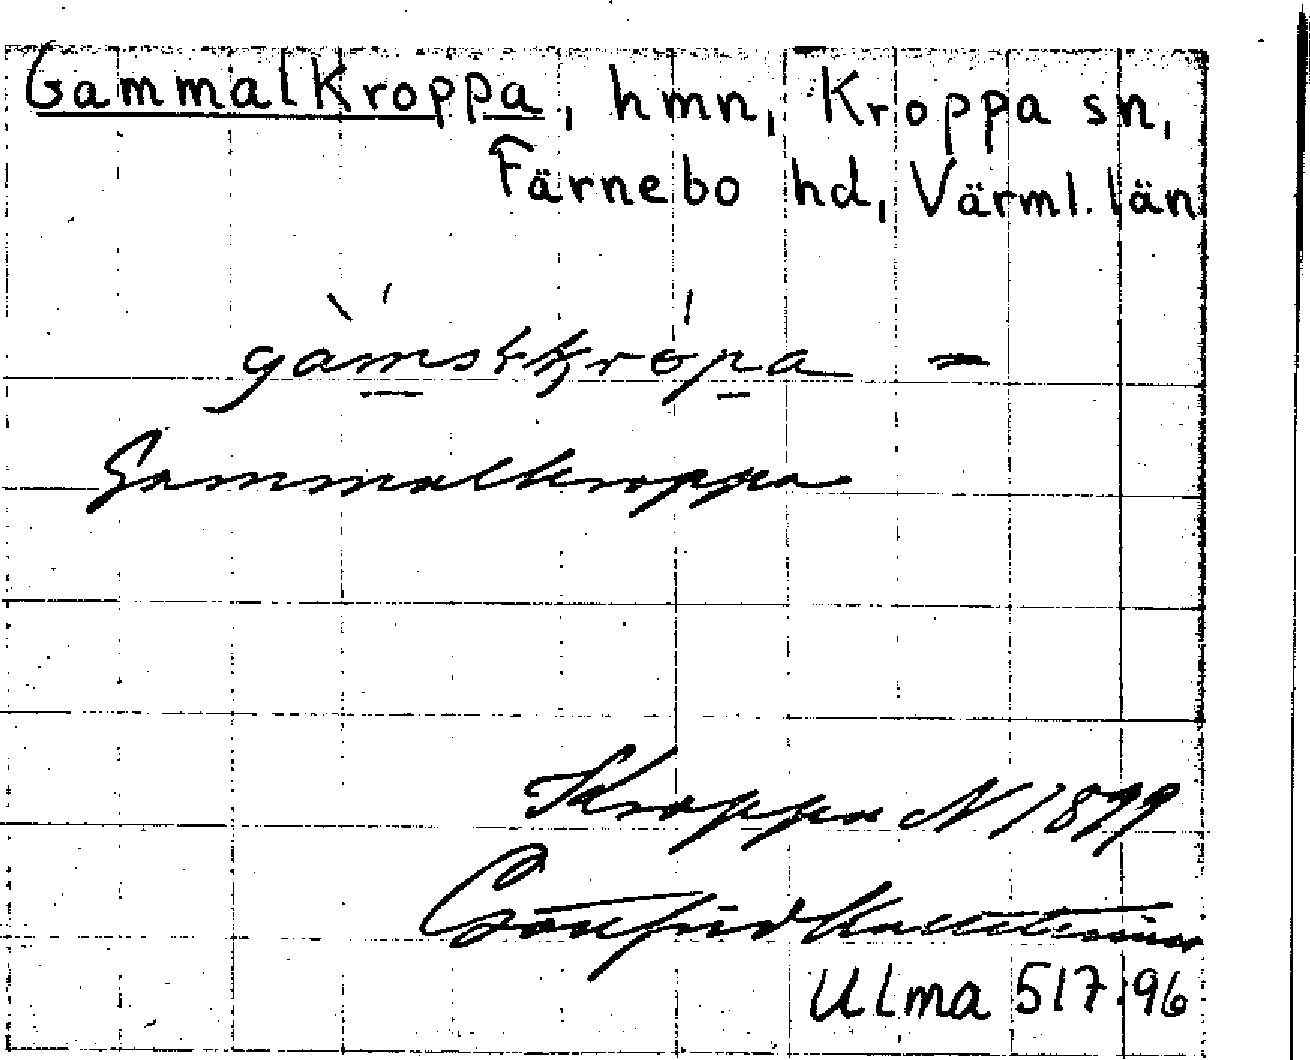 Gammalkroppa, hmn, Kroppa sn,
Färnebo hd, Värml. län
Gammalkroppa
Kroppa N 1899
Gottfrid Kallstenius
Ulma 517:96